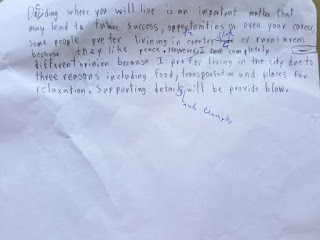 Deciding where you will live is an important matter that
may lead to future success, opportunities or even your career.
Some people prefer livining in or rural areas
because they like peace. However, I have completely
different opinion because I prefer living in the city due to
three reasons including food, transportation and places for
relaxation. Supporting details will be provide blow.
and examples